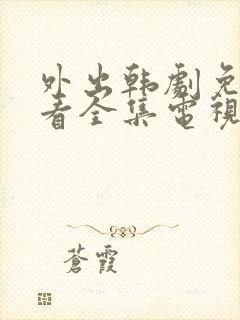 外出韩劇免
看全集電視
蒼霞